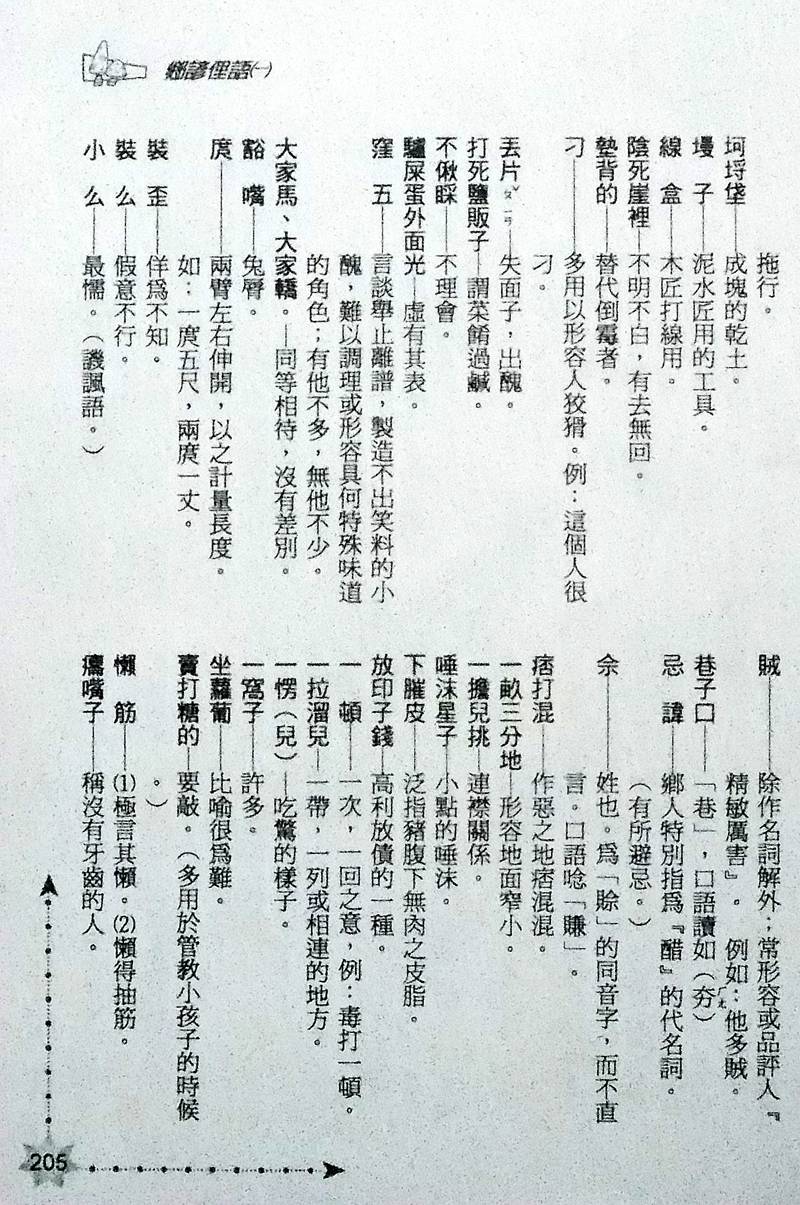 鄉諺俚語㈠
拖行。
坷垺垡——成塊的乾土。
墁　子——泥水匠用的工具。
線　盒——木匠打線用。
陰死崖裡——不明不白，有去無回。
墊背的——替代倒霉者。
刁——多用以形容人狡猾。例：這個人很
刁。
丟片ㄆㄧㄢˇ——失面子，出醜。
打死鹽販子——謂菜餚過鹹。
不偢睬——不理會。
驢屎蛋外面光——虛有其表。
窪　五——言談舉止離譜，製造不出笑料的小
醜，難以調理或形容具何特殊味道
的角色；有他不多，無他不少。
大家馬、大家轎。——同等相待，沒有差別。
豁　嘴——兔脣。
庹——兩臂左右伸開，以之計量長度。
如：一庹五尺，兩庹一丈。
裝　歪——佯爲不知。
裝　么——假意不行。
小　么——最懦。（譏諷語。）
賊——除作名詞解外；常形容或品評人『
精敏厲害』。例如：他多賊。
巷子口——「巷」，口語讀如（夯ㄏㄤ）
忌　諱——鄉人特別指爲『醋』的代名詞。
（有所避忌。）
佘——姓也。爲「賒」的同音字，而不直
言。口語唸「賺」。
痞打混——作惡之地痞混混。
一畝三分地——形容地面窄小。
一擔兒挑——連襟關係。
唾沫星子——小點的唾沫。
下膗皮——泛指豬腹下無肉之皮脂。
放印子錢——高利放債的一種。
一　頓——一次，一回之意，例：毒打一頓。
一拉溜兒——一帶，一列或相連的地方。
一愣（兒）——吃驚的樣子。
一窩子——許多。
坐蘿蔔——比喻很爲難。
賣打糖的——要敲。（多用於管教小孩子的時候
。）
懶　筋——⑴極言其懶。⑵懶得抽筋。
癟嘴子——稱沒有牙齒的人。
205